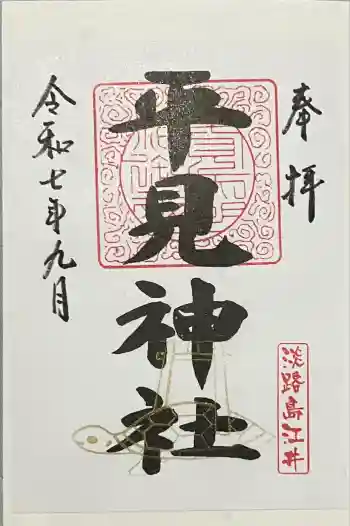 奉拝
平見神社
淡路島江井
令和七年九月